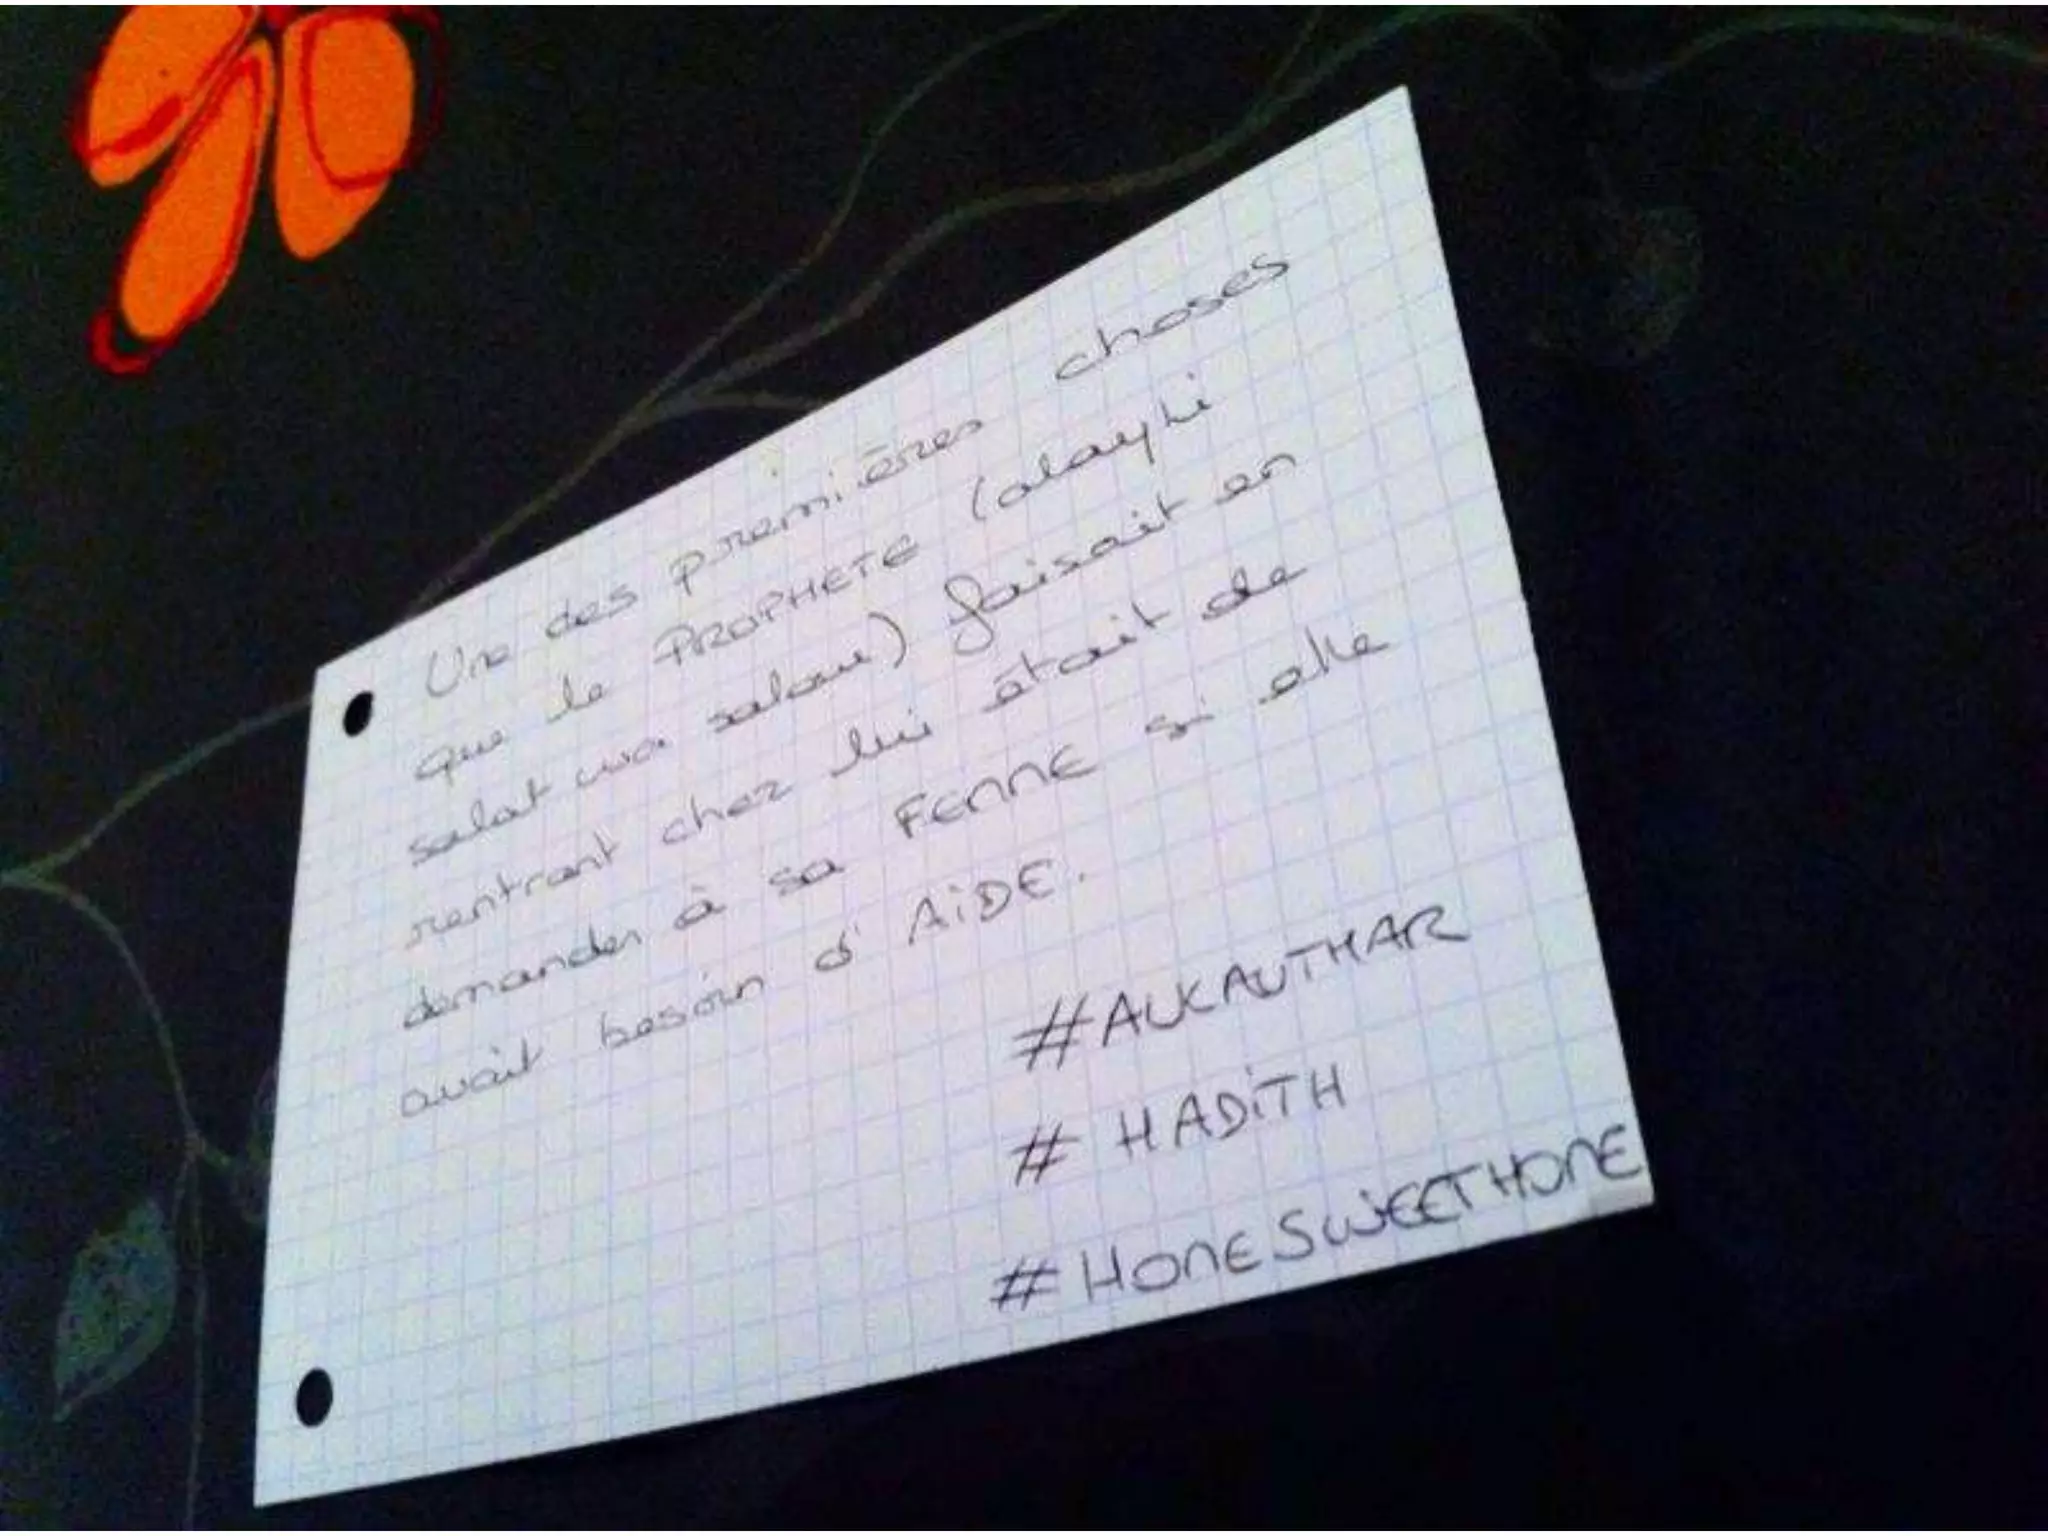 Une des premières choses
que le PROPHETE (alayhi
salat wa salam) faisait en
rentrant chez lui était de
demander à sa FEMME si elle
avait besoin d'AIDE.
#ALKAUTHAR
# HADITH
# HOME SWEET HOME